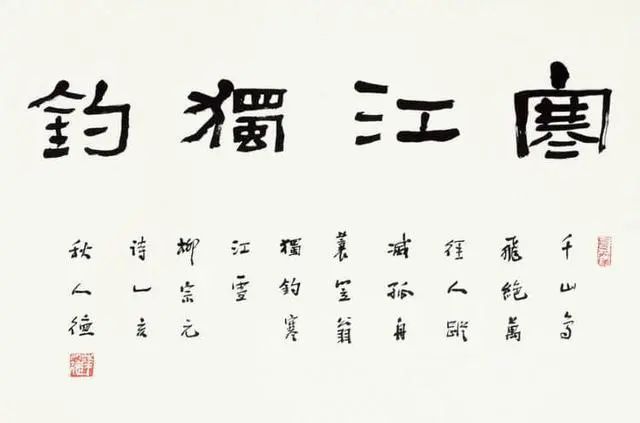 寒江獨釣
千山鳥
飛絕萬
徑人蹤
滅孤舟
蓑笠翁
獨釣寒
江雪
柳宗元
诗乙亥
秋人德